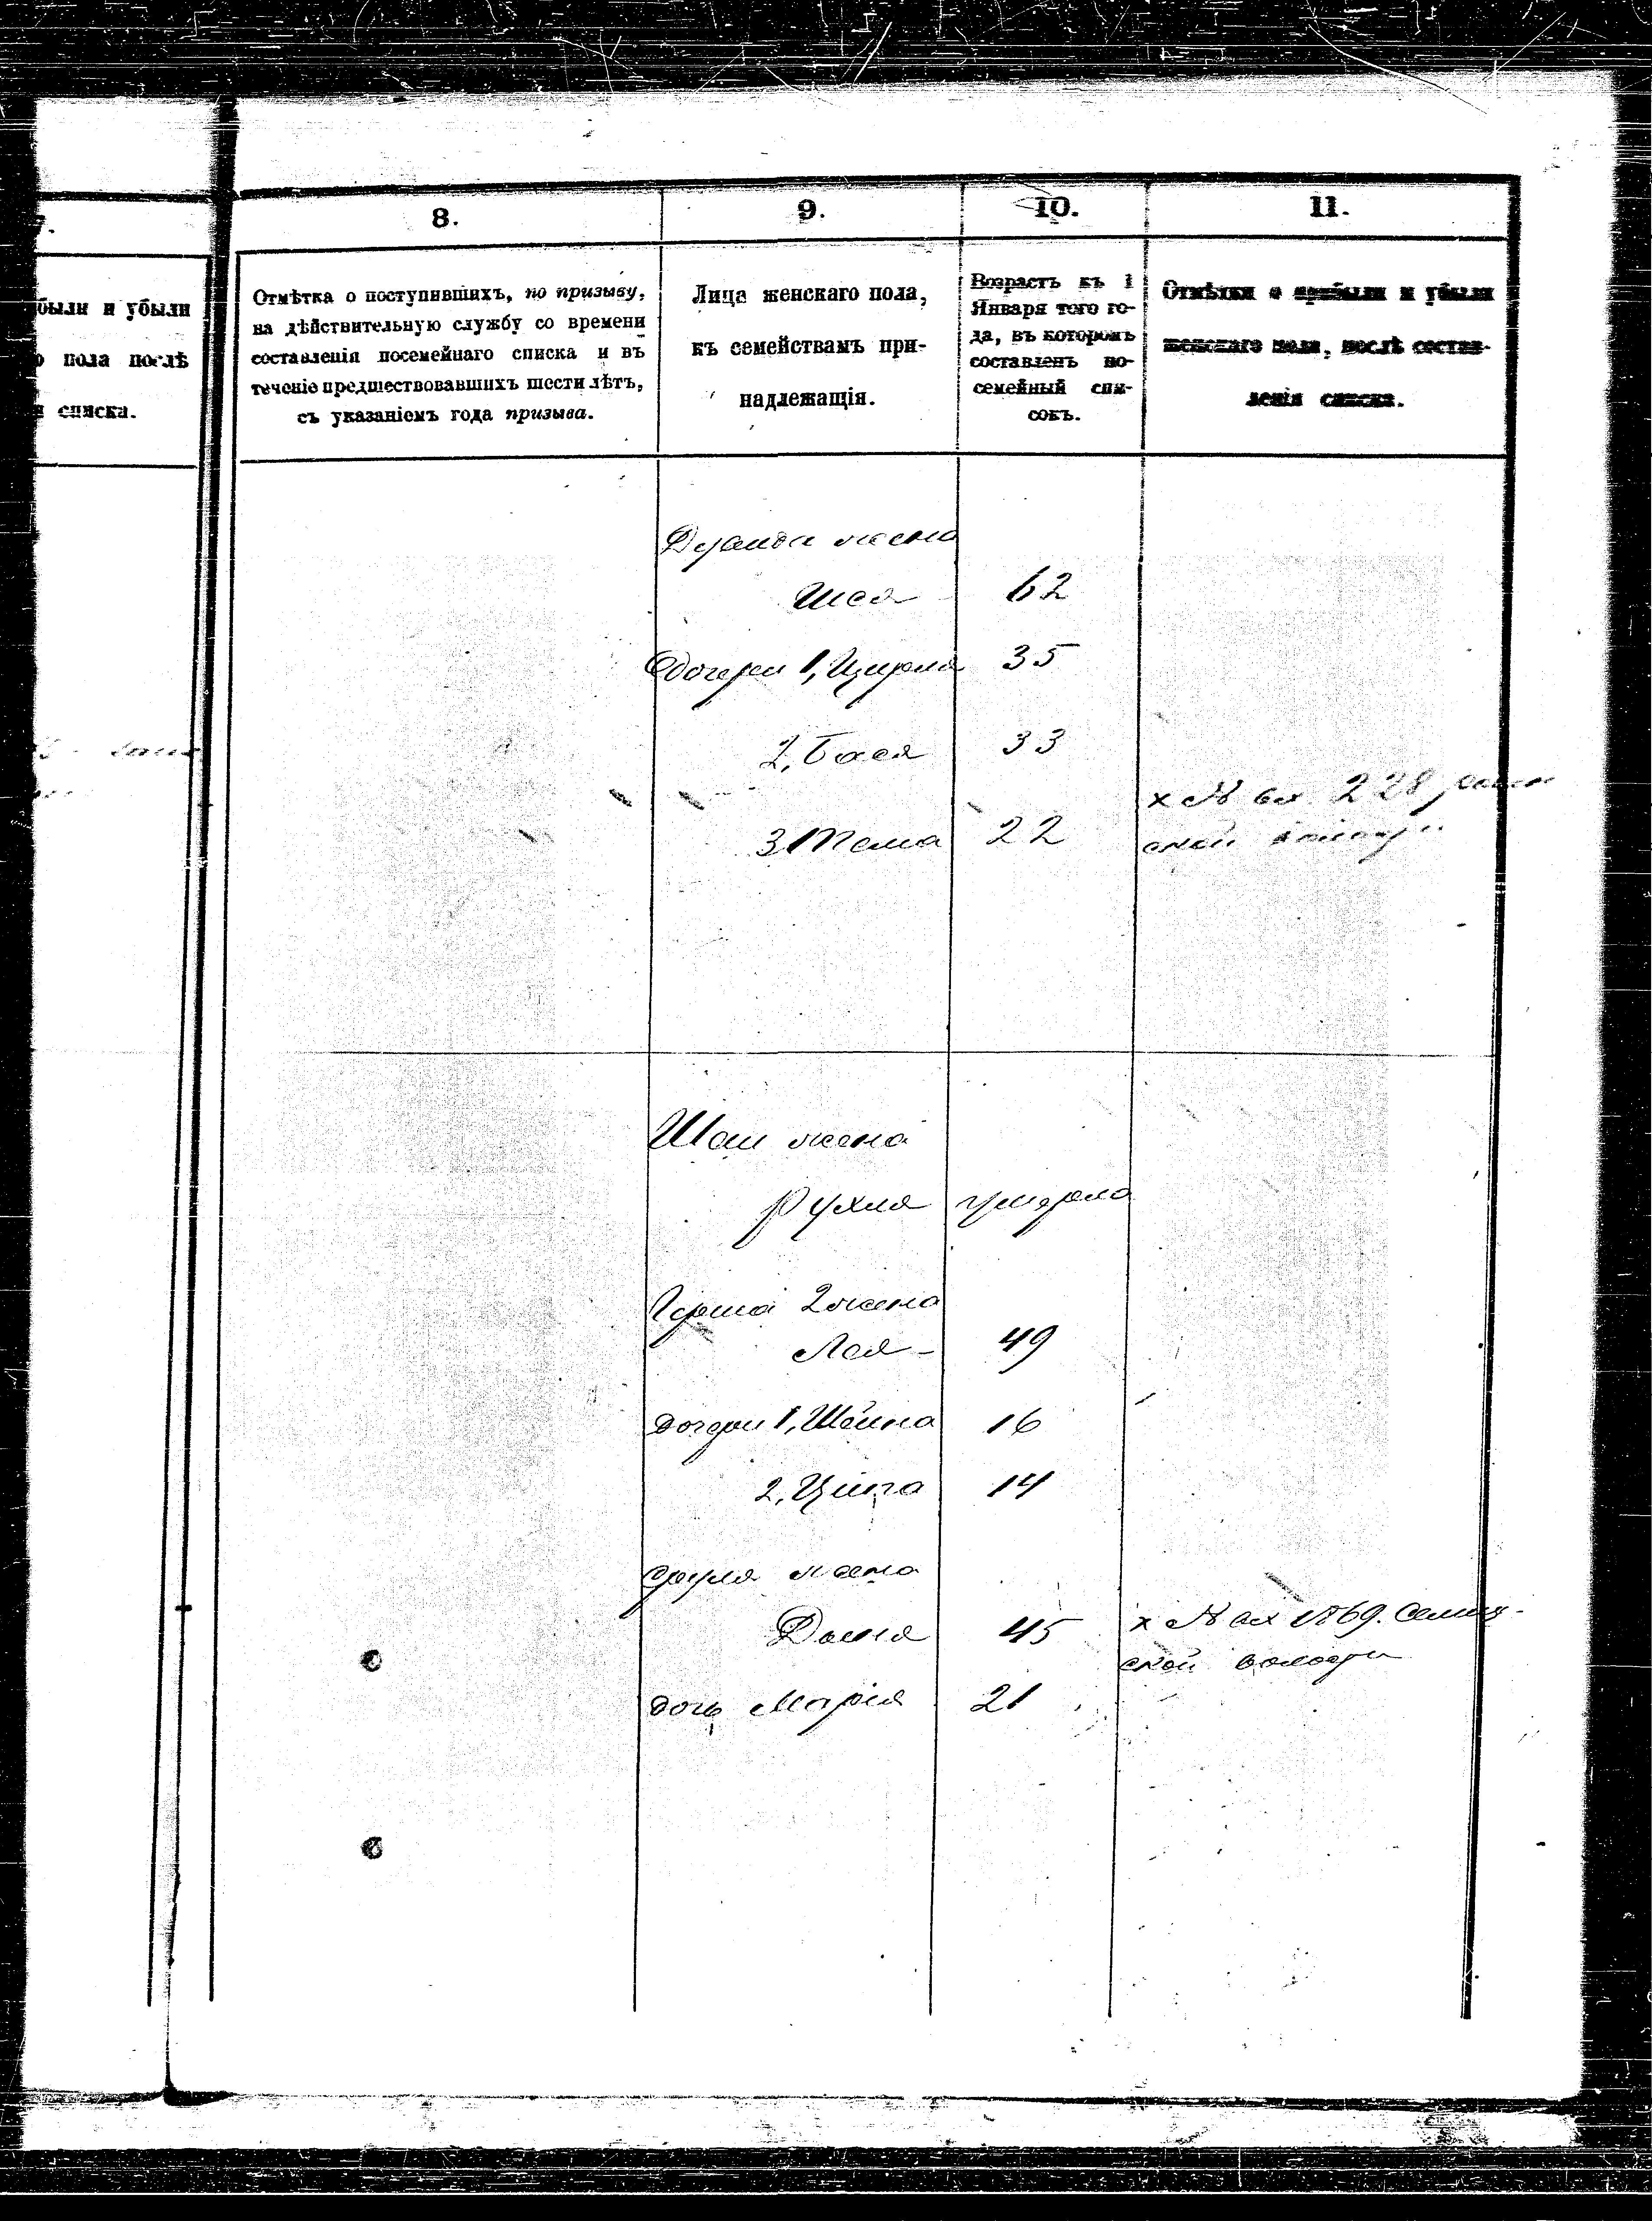 8.
9.
10.
11.
были и убыли
о пола послѣ
списка.
Отмѣтка о поступившихъ, по призыву,
на дѣйствительную службу со времени
составленія посемейнаго списка и въ
теченіе предшествовавшихъ шести лѣтъ,
съ указаніемъ года призыва.
Лица женскаго пола,
къ семействамъ при-
надлежащія.
Возрастъ къ 1
Января того го-
да, въ которомъ
составленъ по-
семейный спи-
сокъ.
Отмѣтки о прибыли и убыли
женскаго пола, послѣ состав-
ленія списка.
жена
62
дочери 1, Цирля 35
2, Бася 33
х № вх 228
3 22
ской
Шаи жена
Рухля умерла
Герша 2 жена
Лея - 49
дочери 1, Шейна 16
2, Ципа 14
Сруля жена
45 х № вх
ской волости
дочь Марія 21